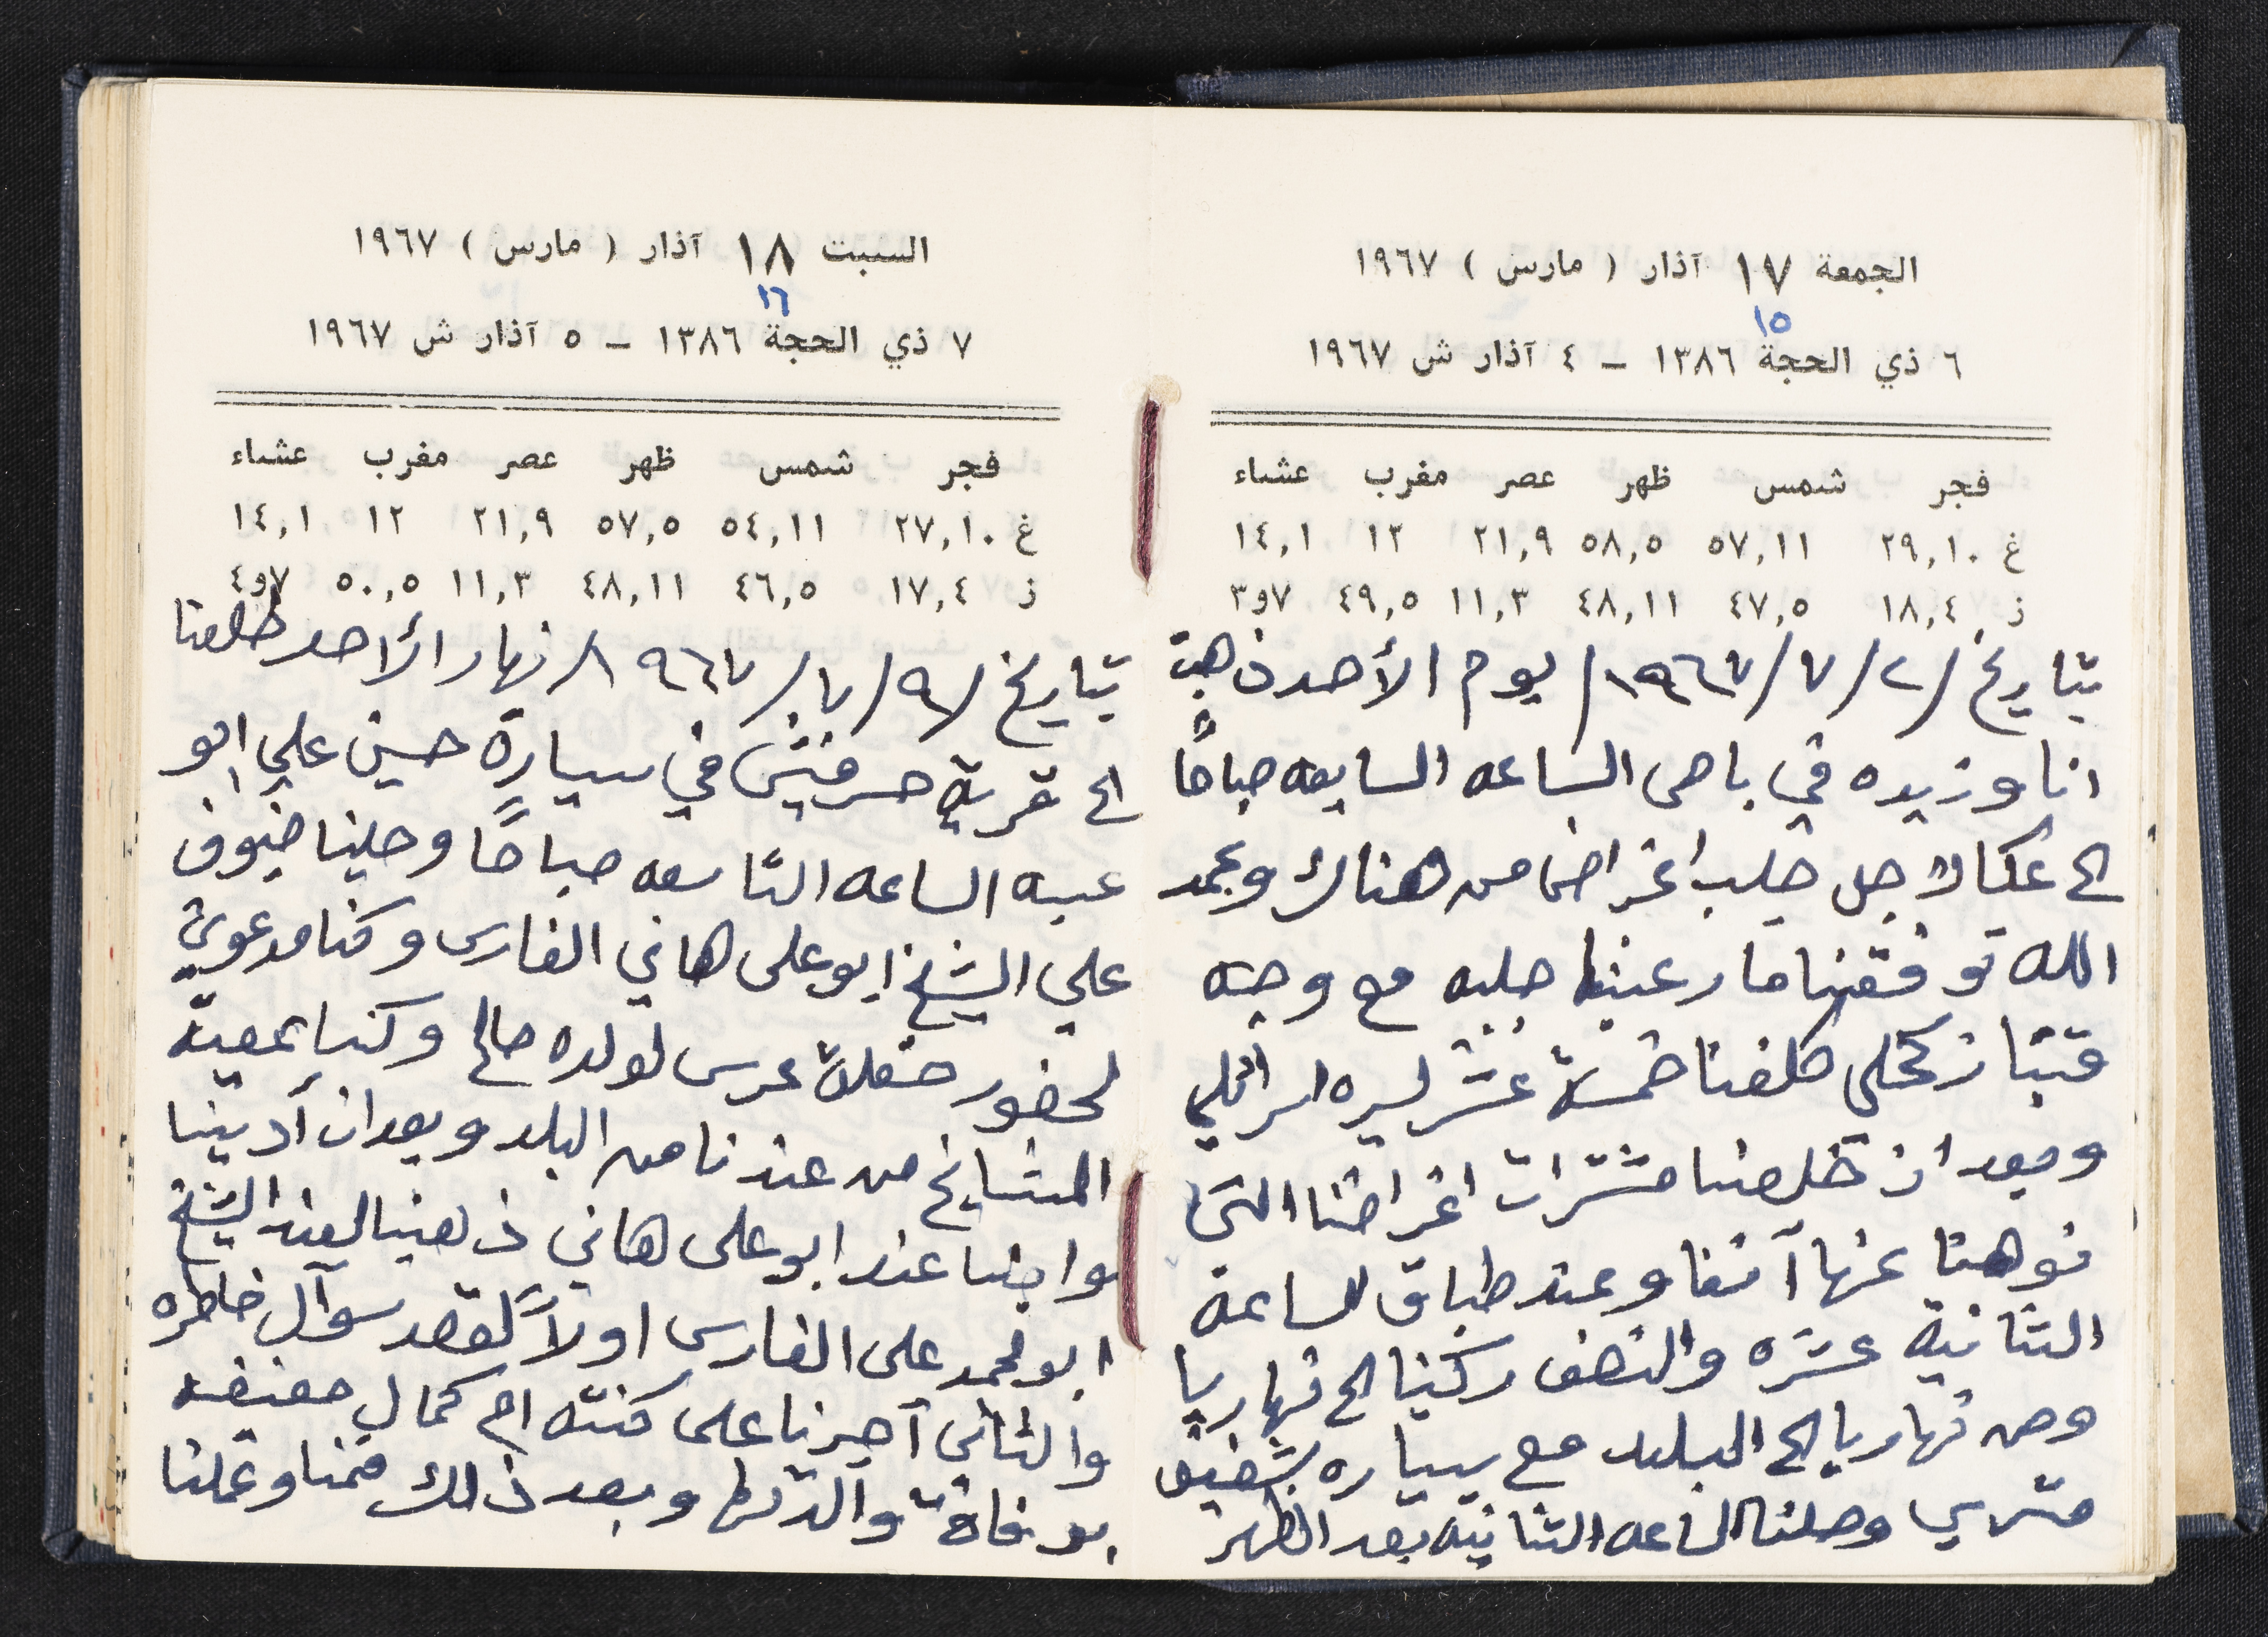 الجمعة ١٧ آذار ( مارس ) ١٩٦٧
١٥
٦ ذي الحجة ١٣٨٦ – ٤ آذار ش ١٩٦٧
فجر شمس ظهر عصر مغرب عشاء
غ ٢٩,١٠ ٥٧,١١ ٥٨,٥ ٢١,٩ ١٢ ١٤,١
ز ١٨,٤ ٤٧,٥ ٤٨,١١ ١١,٣ ٤٩,٥ ٧و٣
بتاريخ /٢/٧/١٩٦٧/ يوم الأحد ذهبت
انا وزيده في باص الساعه السابعه صباحًا
الى عكا لاجل جلب اغراض من هناك وبحمد
الله توفقنا ما رغبنا جلبه مع وجه
قبتاز كحلي كلفنا خمسة عشر ليره اسرائلي
وبعد ان خلصنا مشترات اغراضنا التي
نوهنا عنها آنفا وعند طباق الساعة
الثانية عشره والنصف ركبنا الى نهاريا
ومن نهاريا الى البلد مع سياره شفيق
متري وصلنا الساعه الثانيه بعد الظهر
السبت ١٨ آذار ( مارس ) ١٩٦٧
١٦
٧ ذي الحجة ١٣٨٦ – ٥ آذار ش ١٩٦٧
فجر شمس ظهر عصر مغرب عشاء
غ ٢٧,١٠ ٥٤,١١ ٥٧,٥ ٢١,٩ ١٢ ١٤,١
ز ١٧,٤ ٤٦,٥ ٤٨,١١ ١١,٣ ٥٠,٥ ٧و٤
بتاريخ /٩/٧/١٩٦٧/ نهار الأحد طلعنا
الى قرية حرفيش في سيارة حسين علي ابو
عبيه الساعه التاسعه صباحًا وحلينا ضيوف
علي الشيخ ابو علي هاني الفارس وكنا مدعوين
لحضور حفلة عرس لولده صالح وكنا بمعية
المشايخ من عندنا من البلد وبعد ان أدينا
واجبنا عند ابو علي هاني ذهبنا لعند الشيخ
ابو محمد علي الفارس اولاً لقصد سوآل خاطره
والثاني آجرنا على كنته ام كمال حفيفه
بوفاة والدتها وبعد ذلك قمنا وعملنا